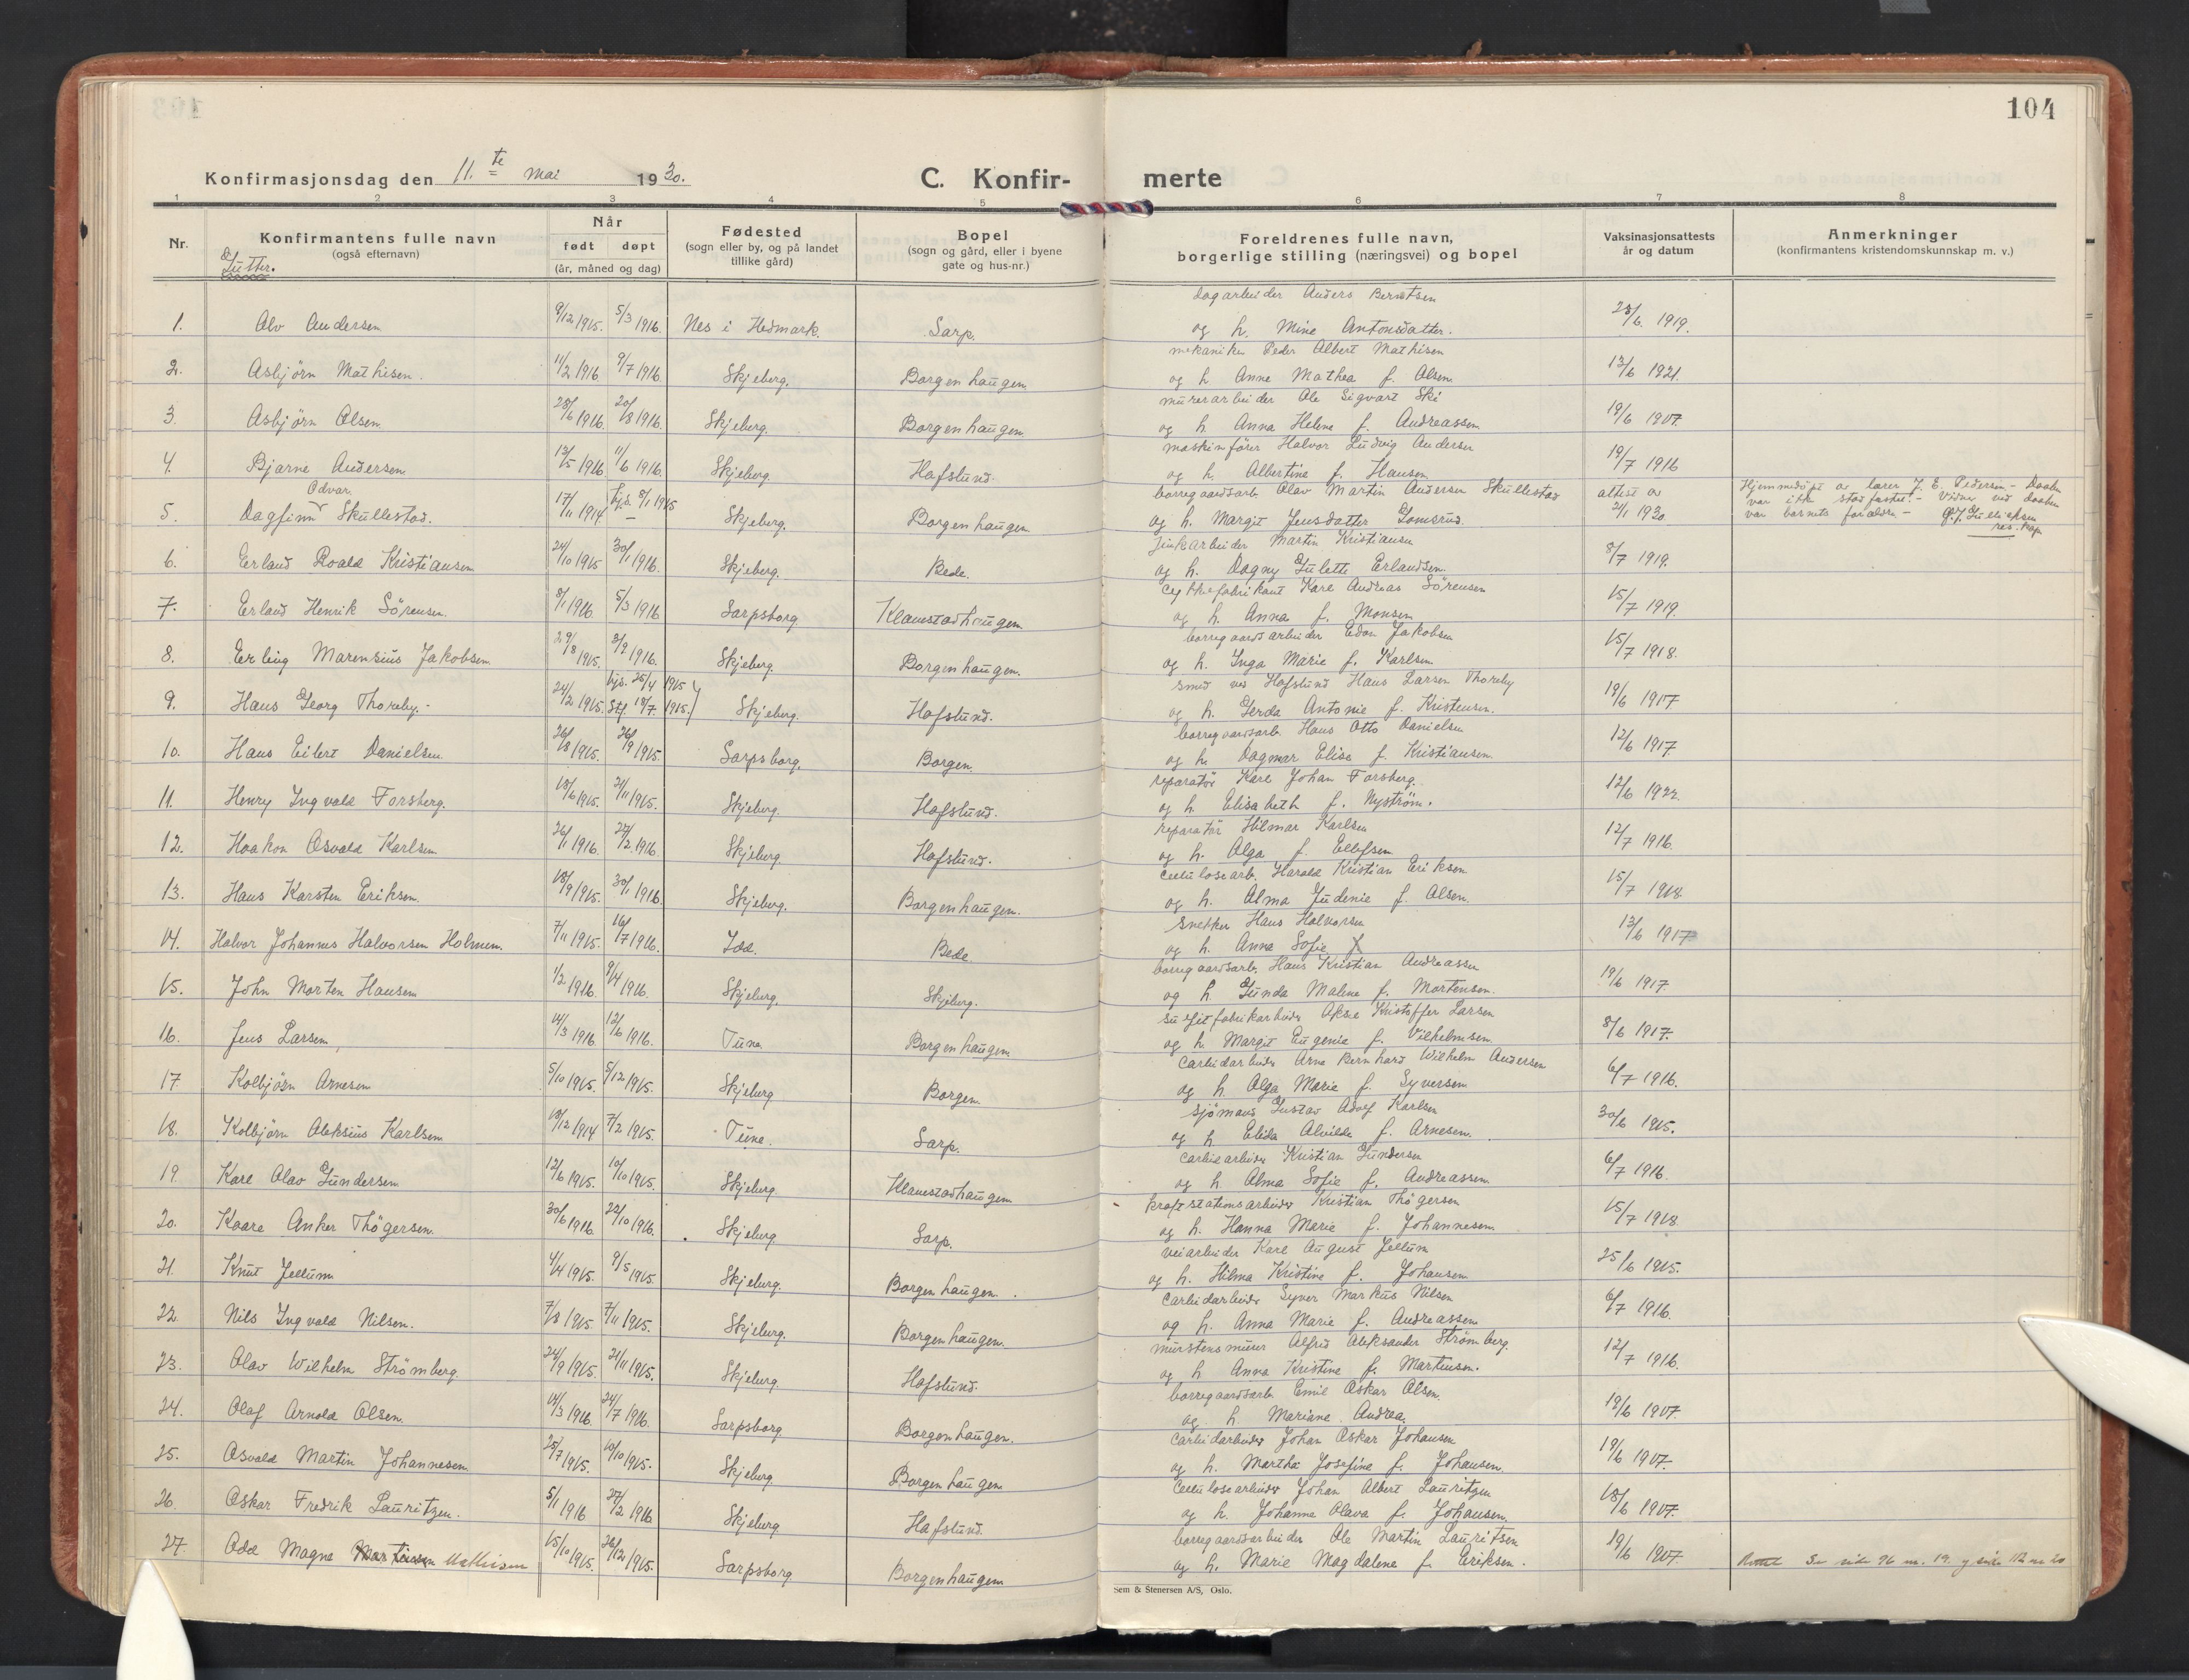 104
Konfirmasjonsdag den 11.te mai 1930.
C. Konfir- merte
1 2 3 4 5 6 7 8
Nr. Konfirmantens fulle navn (også efternavn) Når født døpt (år, måned og dag) Fødested (sogn eller by, og på landet tillike gård) Bopel (sogn og gård, eller i byene gate og hus-nr.) Foreldrenes fulle navn, borgerlige stilling (næringsvei) og bopel Vaksinasjonsattests år og datum Anmerkninger (konfirmantens kristendomskunnskap m. v.)
Gutter.
dagarbeider Anders Berntsen
1. Alv Andersen 9/12 1915. 5/3 1916. Nes i Hedmark. Sarp. og h. Mine Antonsdatter. 23/6. 1919.
mekaniker Peder Albert Mathisen
2. Asbjörn Mathisen. 11/2 1916 9/7 1916. Skjeberg. Borgenhaugen og h. Anne Mathea f. Olsen 13/6 1921.
murerarbeider Ole Sigvart Ski
3. Asbjörn Olsen 28/6 1916. 20/8 1916. Skjeberg. Borgenhaugen. og h. Anna Helene f. Andreassen 19/6 1917.
maskinförer Halvor Ludvig Andersen
4. Bjarne Andersen 13/5 1916 11/6 1916. Skjeberg. Hafslund. og h. Albertine f. Hansen 19/7 1916
borregaardsarb. Olav Martin Andersen Skullestad
5. Dagfinn Odvar Skullestad. 17/11 1914. hjd. 8/1 1915 — Skjeberg. Borgenhaugen og h. Margit Jensdatter Lomsrud. attest av 21/1 1930
Hjemmedöpt av lærer J. E. Pedersen - Daaben
var ikke stadfæstet. - Vidner ved daaben
var barnets forældre -
res. kap.
Martin Kristiansen
6. Erland Roald Kristiansen 24/10 1915 30/1 1916. Skjeberg. Bede. og h. Dagny Julette Erlandsen. 8/7 1919.
Karl Andreas Sörensen
7. Erland Henrik Sörensen. 8/1 1916 5/3 1916 Sarpsborg Klavestadhaugen og h. Anna f. Monsen 15/7 1919.
borregaardsarbeider Edon Jakobsen
8. Erling Marensius Jakobsen 29/8 1915. 3/2 1916. Skjeberg. Borgenhaugen. og h. Inga Marie f. Karlsen 15/7 1918.
smed ved Hafslund Hans Larsen Thoreby
9. Hans Georg Thoreby. - 24/2 1915. hjd. 25/4 1915 Stf. 18/7. 1915. Skjeberg. Hafslund. og h. Gerda Antonie f. Kristensen. 19/6 1917
borregaardsarb. Hans Otto Danielsen
10. Hans Eilert Danielsen 26/8 1915. 26/9 1915. Sarpsborg. Borgen. og h. Dagmar Elise f. Kristiansen 12/6 1917
reparatör Karl Johan Forsberg.
11. Henry Ingvald Forsberg. 18/6 1915. 21/11 1915. Skjeberg. Hafslund. og h. Elisabeth f. Nyström. 12/6 1922.
reparatör Hilmar Karlsen
12. Haakon Osvald Karlsen 26/1 1916. 27/2 1916 Skjeberg. Hafslund. og h. Olga f. Ellefsen 12/7 1916.
cellulosearb. Harald Kristian Eriksen
13. Hans Karsten Eriksen. 18/9 1915. 30/1 1916. Skjeberg. Borgenhaugen. og h. Alma Judenie f. Olsen. 15/7 1918.
snekker Hans Halvorsen
14. Halvor Johannes Halvorsen Holmen. 7/11 1915. 16/7 1916. Idd. Bede. og h. Anna Sofie f. 13/6 1917
borregaardsarb. Hans Kristian Andreassen
15. John Morten Hansen 1/2 1916. 9/4 1916. Skjeberg. Skjeberg. og h. Gunda Malene f. Mortensen. 19/6 1917
sulfitfabrikarbeider Aksel Kristoffer Larsen
16. Jens Larsen, 14/3 1916 12/6 1916. Tune Borgenhaugen og h. Margit Eugenie f. Vilhelmsen. 8/6 1917.
Carbidarbeider Arne Bernhard Wilhelm Andersen
17 Kolbjörn Arnesen 5/10 1915. 5/12 1915. Skjeberg Borgen. og h. Olga Marie f. Syversen 6/7 1916.
sjömand Gustav Adolf Karlsen
18. Kolbjörn Aleksius Karlsen 18/12 1914 7/2 1915. Tune. Sarp. og h. Elida Alvilde f. Arnesen. 30/6 1915.
Carbidarbeider Kristian Gundersen
19. Karl Olav Gundersen 12/6 1915. 10/10 1915. Skjeberg. Klavestadhaugen og h. Alma Sofie f. Andreassen 6/7 1916.
kraftstationsarbeider Kristian Thögersen
20. Kaare Anker Thögersen. 30/6 1916 22/10 1916. Skjeberg Sarp. og h. Hanna Marie f. Johannesen. 15/7 1918.
veiarbeider Karl August Jellum
21. Knut Jellum 4/4 1915. 9/5 1915. Skjeberg. Borgenhaugen. og h. Hilma Kristine f. Johansen 25/6 1915.
Carbidarbeider Syver Markus Nilsen
22. Nils Ingvald Nilsen. 7/8 1915 7/11 1915. Skjeberg. Borgenhaugen. og h. Anna Marie f. Andreassen 6/7 1916.
murstensmurer Alfred Aleksander Strömberg.
23. Olav Wilhelm Strömberg. 24/9 1915. 21/11 1915. Skjeberg. Hafslund. og h. Anna Kristine f. Martinsen. 12/7 1916.
borregaardsarb. Emil Oskar Olsen.
24. Olaf Arnold Olsen. 14/3 1916. 24/7 1916. Sarpsborg Borgenhaugen. og. h. Mariane Andrea. 19/6 1917.
Carbidarbeider Johan Oskar Johansen
25. Osvald Martin Johannesen. 25/7 1915. 10/10 1915. Skjeberg. Borgenhaugen og h. Martha Josefine f. Johansen. 19/6 1917.
Cellulosearbeider Johan Albert Lauritzen
26. Oskar Fredrik Lauritzen. 5/1 1916 27/2 1916. Skjeberg. Hafslund. og h. Johanne Olava f. Johansen. 18/6 1917.
borregaardsarbeider Ole Martin Lauritsen
27. Odd Magne Martinsen Mathisen 15/10 1915. 26/12 1915. Sarpsborg Borgenhaugen og h. Marie Magdalene f. Eriksen. 19/6 1917. Se side 96 nr. 19. og side 112 nr 20
Sem & Stenersen A/S, Oslo.